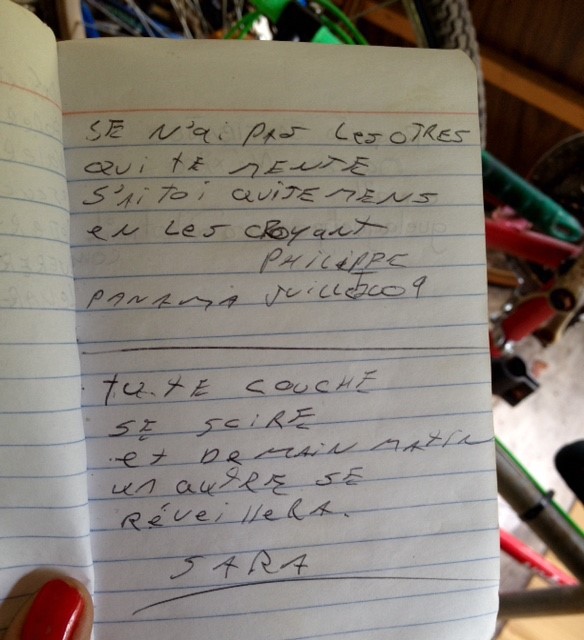 SE N'ai PAS Les OTRES
QUi tE MENTE
S'AitOi QUiTEMENS
en Les CROyant
PHiLiPPE
PANAMA JUiLLE 2009
tU.tE COUCHE
SE SOIRE
et DEMAIN MATIN
un AUTRE SE
RévEillERA.
SARA